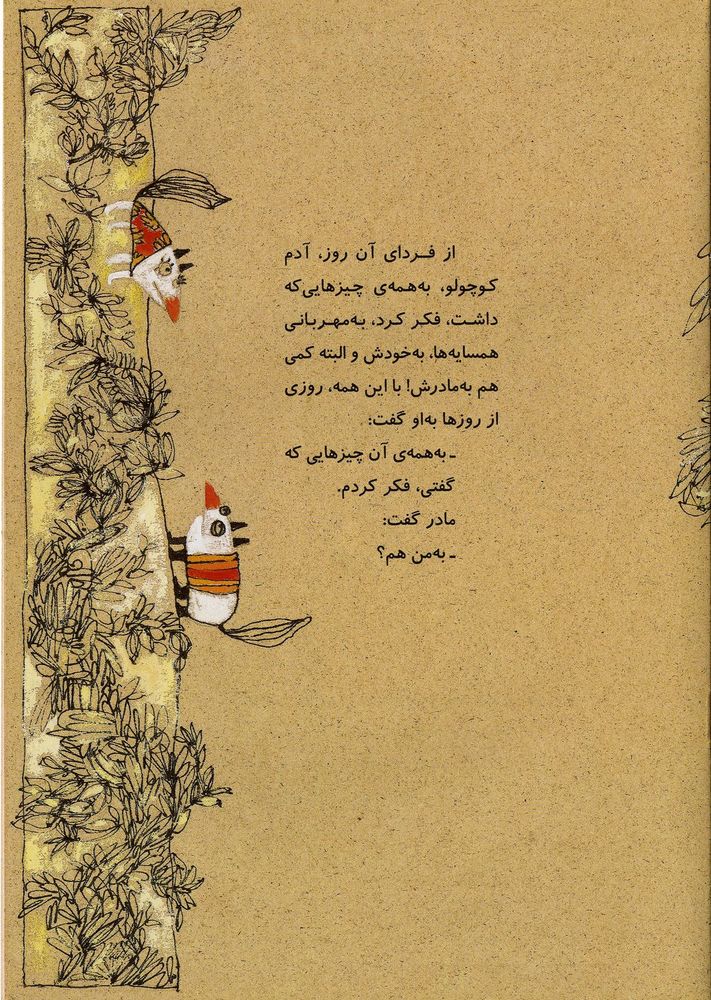 از فـردای آن روز، آدم
کوچولو، به‌همه‌ی چیزهایی‌که
داشت، فکر کرد، به‌مهـربانی
همسایه‌ها، به‌خودش و البته کمی
هم به‌مادرش! با این همه، روزی
از روزها به‌او گفت:
ـ به‌همه‌ی آن چیزهایی که
گفتی، فکر کردم.
مادر گفت:
ـ به‌من هم؟